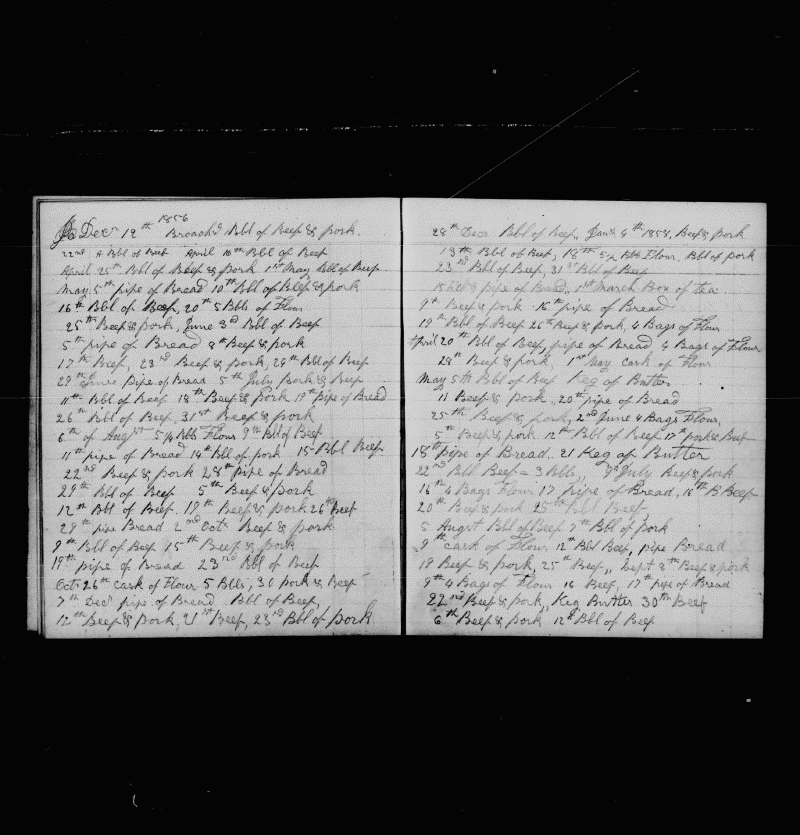 1856
Dec 12th Broachd Bbl of Beef & pork.
22nd A Bbl of Beef April 10th Bbl of Beef
April 25th Bbl of Beef & pork 1st May Bbl of Beef
May 5th pipe of Bread 10th Bbl of Beef & pork
16th Bbl of Beef, 20th 5 Bbls of Flour
25th Beef & pork, June 3d Bbl of Beef
5th pipe of Bread 8th Beef & pork
17th Beef, 23rd Beef & pork, 24th Bbl of Beef
29th June pipe of Bread 5th July pork & Beef
11th Bbl of Beef 18th Beef & pork 19th pipe of Bread
26th Bbl of Beef, 31st Beef & pork
6th of Augst 5 Bbls Flour 9th Bbl of Beef
11th pipe of Bread 14th Bbl of pork 15 Bbl Beef
22nd Beef & pork 28th pipe of Bread
29th Bbl of Beef 5th Beef & pork
12th Bbl of Beef. 19th Beef & pork 26th Beef
29th pipe Bread 2nd Octr Beef & pork
9th Bbl of Beef 15th Beef & pork
19th pipe of Bread 23rd Bbl of Beef
Octr 26th cask of Flour 5 Bbls, 30 pork & Beef
7th Decr pipe of Bread Bbl of Beef,
12th Beef & pork, 21st Beef, 23rd Bbl of pork
28th Decr Bbl of Beef, Jany 4th 1858, Beef & pork
13th Bbl of Beef, 18th Bbls Flour, Bbl of pork
23rd Bbl of Beef, 31st Bbl of Beef
pipe of Bread, 1st March Box of tea
9th Beef & pork 16th pipe of Bread
19th Bbl of Beef 26th Beef & pork, 4 Bags of Flour
April 20th Bbl of Beef, pipe of Bread 4 Bags of Flour
28th Beef & pork, 1st May cask of Flour
May 5th Bbl of Beef Keg of Butter
11 Beef & pork 20th pipe of Bread
25th Beef & pork, 2nd June 4 Bags Flour,
5th Beef & pork 12th Bbl of Beef 17th pork & Beef
18th pipe of Bread, 21 Keg of Butter
22nd Bbl Beef = 3 Bbls, July Beef & pork
16th 4 Bags Flour 17 pipe of Bread, 18th B Beef
20th Beef & pork 25th Bbl Beef
5 Augst Bbl of Beef 7th Bbl of pork
9th cask of Flour 12th Bbl Beef, pipe Bread
19 Beef & pork, 25th Beef, Sept 2th Beef & pork
9th 4 Bags of Flour 16 Beef, 17th pipe of Bread
22nd Beef & pork, Keg Butter 30th Beef
6th Beef & pork 12th Bbl of Beef